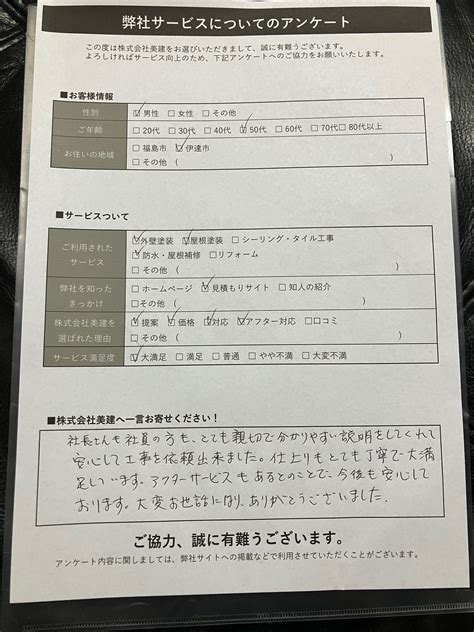 弊社サービスについてのアンケート
この度は株式会社美建をお選びいただきまして、誠に有難うございます。
よろしければサービス向上のため、下記アンケートへのご協力をお願いいたします。
■お客様情報
性別 ☑男性 □女性 □その他
ご年齢 □20代 □30代 □40代 ☑50代 □60代 □70代□80代以上
お住いの地域 □福島市 ☑伊達市
□その他 ( )
■サービスついて
ご利用された
サービス
☑外壁塗装 ☑屋根塗装 □シーリング・タイル工事
☑防水・屋根補修 □リフォーム
□その他 ( )
弊社を知った
きっかけ
□ホームページ ☑見積もりサイト □知人の紹介
□その他( )
株式会社美建を
選ばれた理由
☑提案 ☑価格 ☑対応 ☑アフター対応 □口コミ
□その他 ( )
サービス満足度 ☑大満足 □満足 □普通 □やや不満 □大変不満
■株式会社美建へ一言お寄せください!
社長さんも社員の方も、とても親切で分かりやすい説明をしてくれて
安心して工事を依頼出来ました。仕上りもとても丁寧で大満
足しています。アフターサービスもあるとのことで、今後も安心して
おります。大変お世話になり、ありがとうございました。
ご協力、誠に有難うございます。
アンケート内容に関しましては、弊社サイトへの掲載などで利用させていただくことがございます。